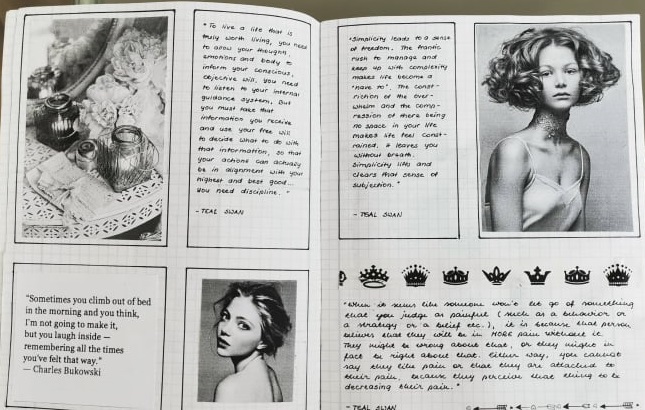 "To live a life that is
truly worth living, you need
to allow your thoughts,
emotions and body to
inform your conscious,
objective will. You need
to listen to your internal
guidance system. But
you must take that
information you receive
and use your free will
to decide what to do with
that information, so that
your actions can actually
be in alignment with your
highest and best good...
You need discipline."
- TEAL SWAN
"Sometimes you climb out of bed
in the morning and you think,
I'm not going to make it,
but you laugh inside —
remembering all the times
you've felt that way."
— Charles Bukowski
"Simplicity leads to a sense
of freedom. The frantic
rush to manage and
keep up with complexity
makes life become a
"have to". The const-
riction of the over-
whelm and the comp-
ression of there being
no space in your life
makes life feel const-
rained. It leaves you
without breath.
Simplicity lifts and
clears that sense of
subjection."
- TEAL SWAN
"When it seems like someone won't let go of something
that you judge as painful (such as a behavior or
a strategy or a belief etc.), it is because that person
believes that they will be in MORE pain without it.
They might be wrong about that, or they might in
fact be right about that. Either way, you cannot
say they like pain or that they are attached to
their pain, because they perceive that thing to be
decreasing their pain."
- TEAL SWAN